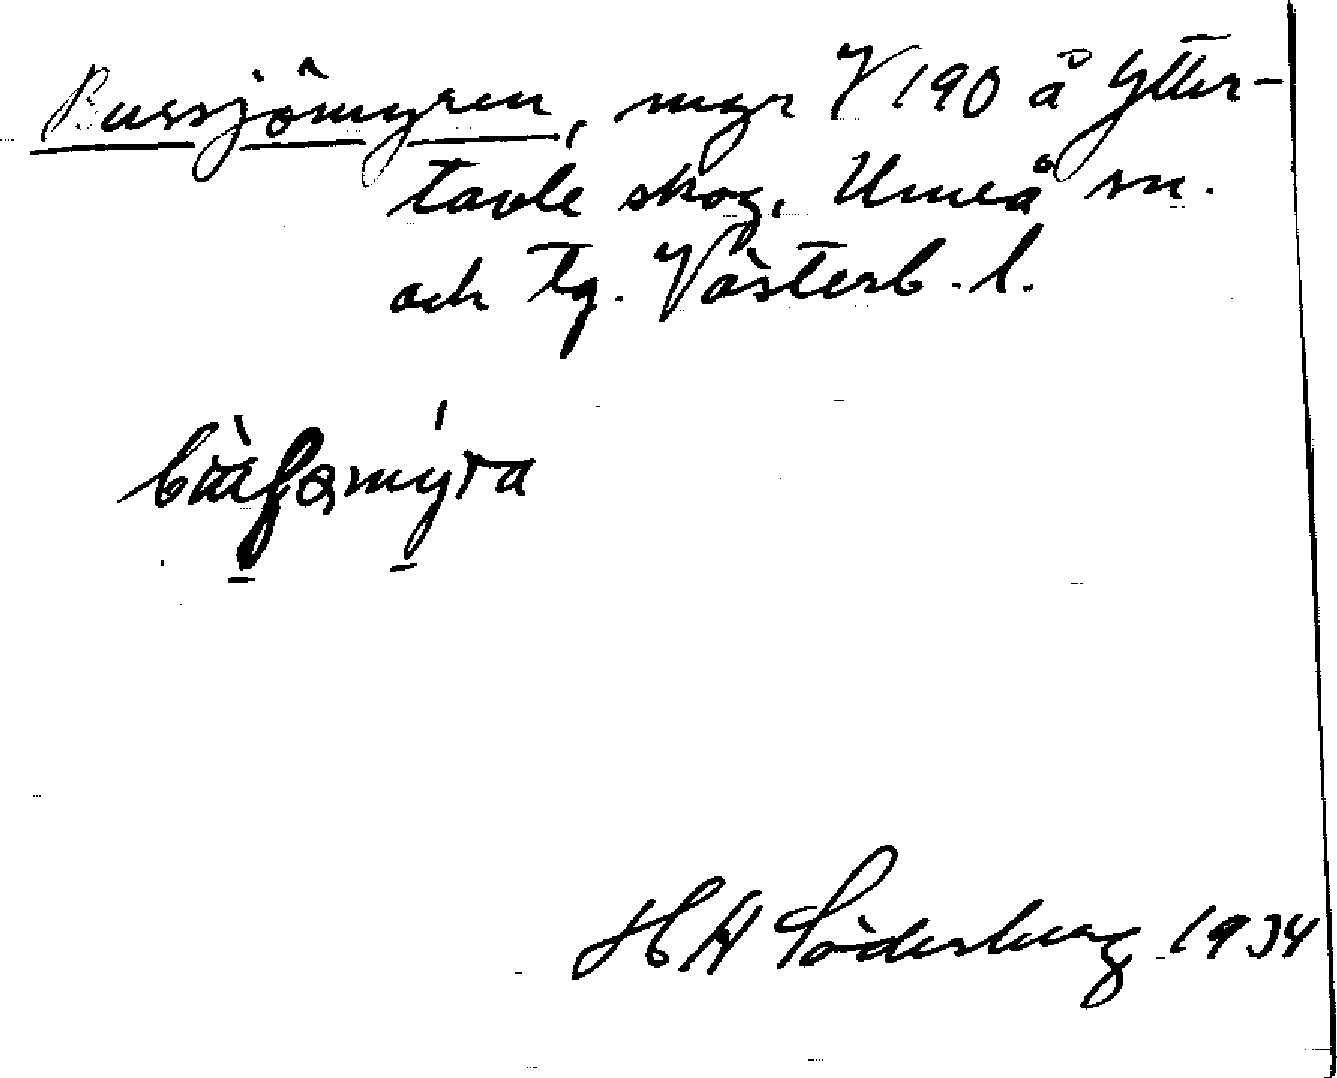 Bussjömyren, myr V 190 å Ytter-
tavle skog, Umeå sn.
och tg. Västerb. l.
H A Söderberg 1934